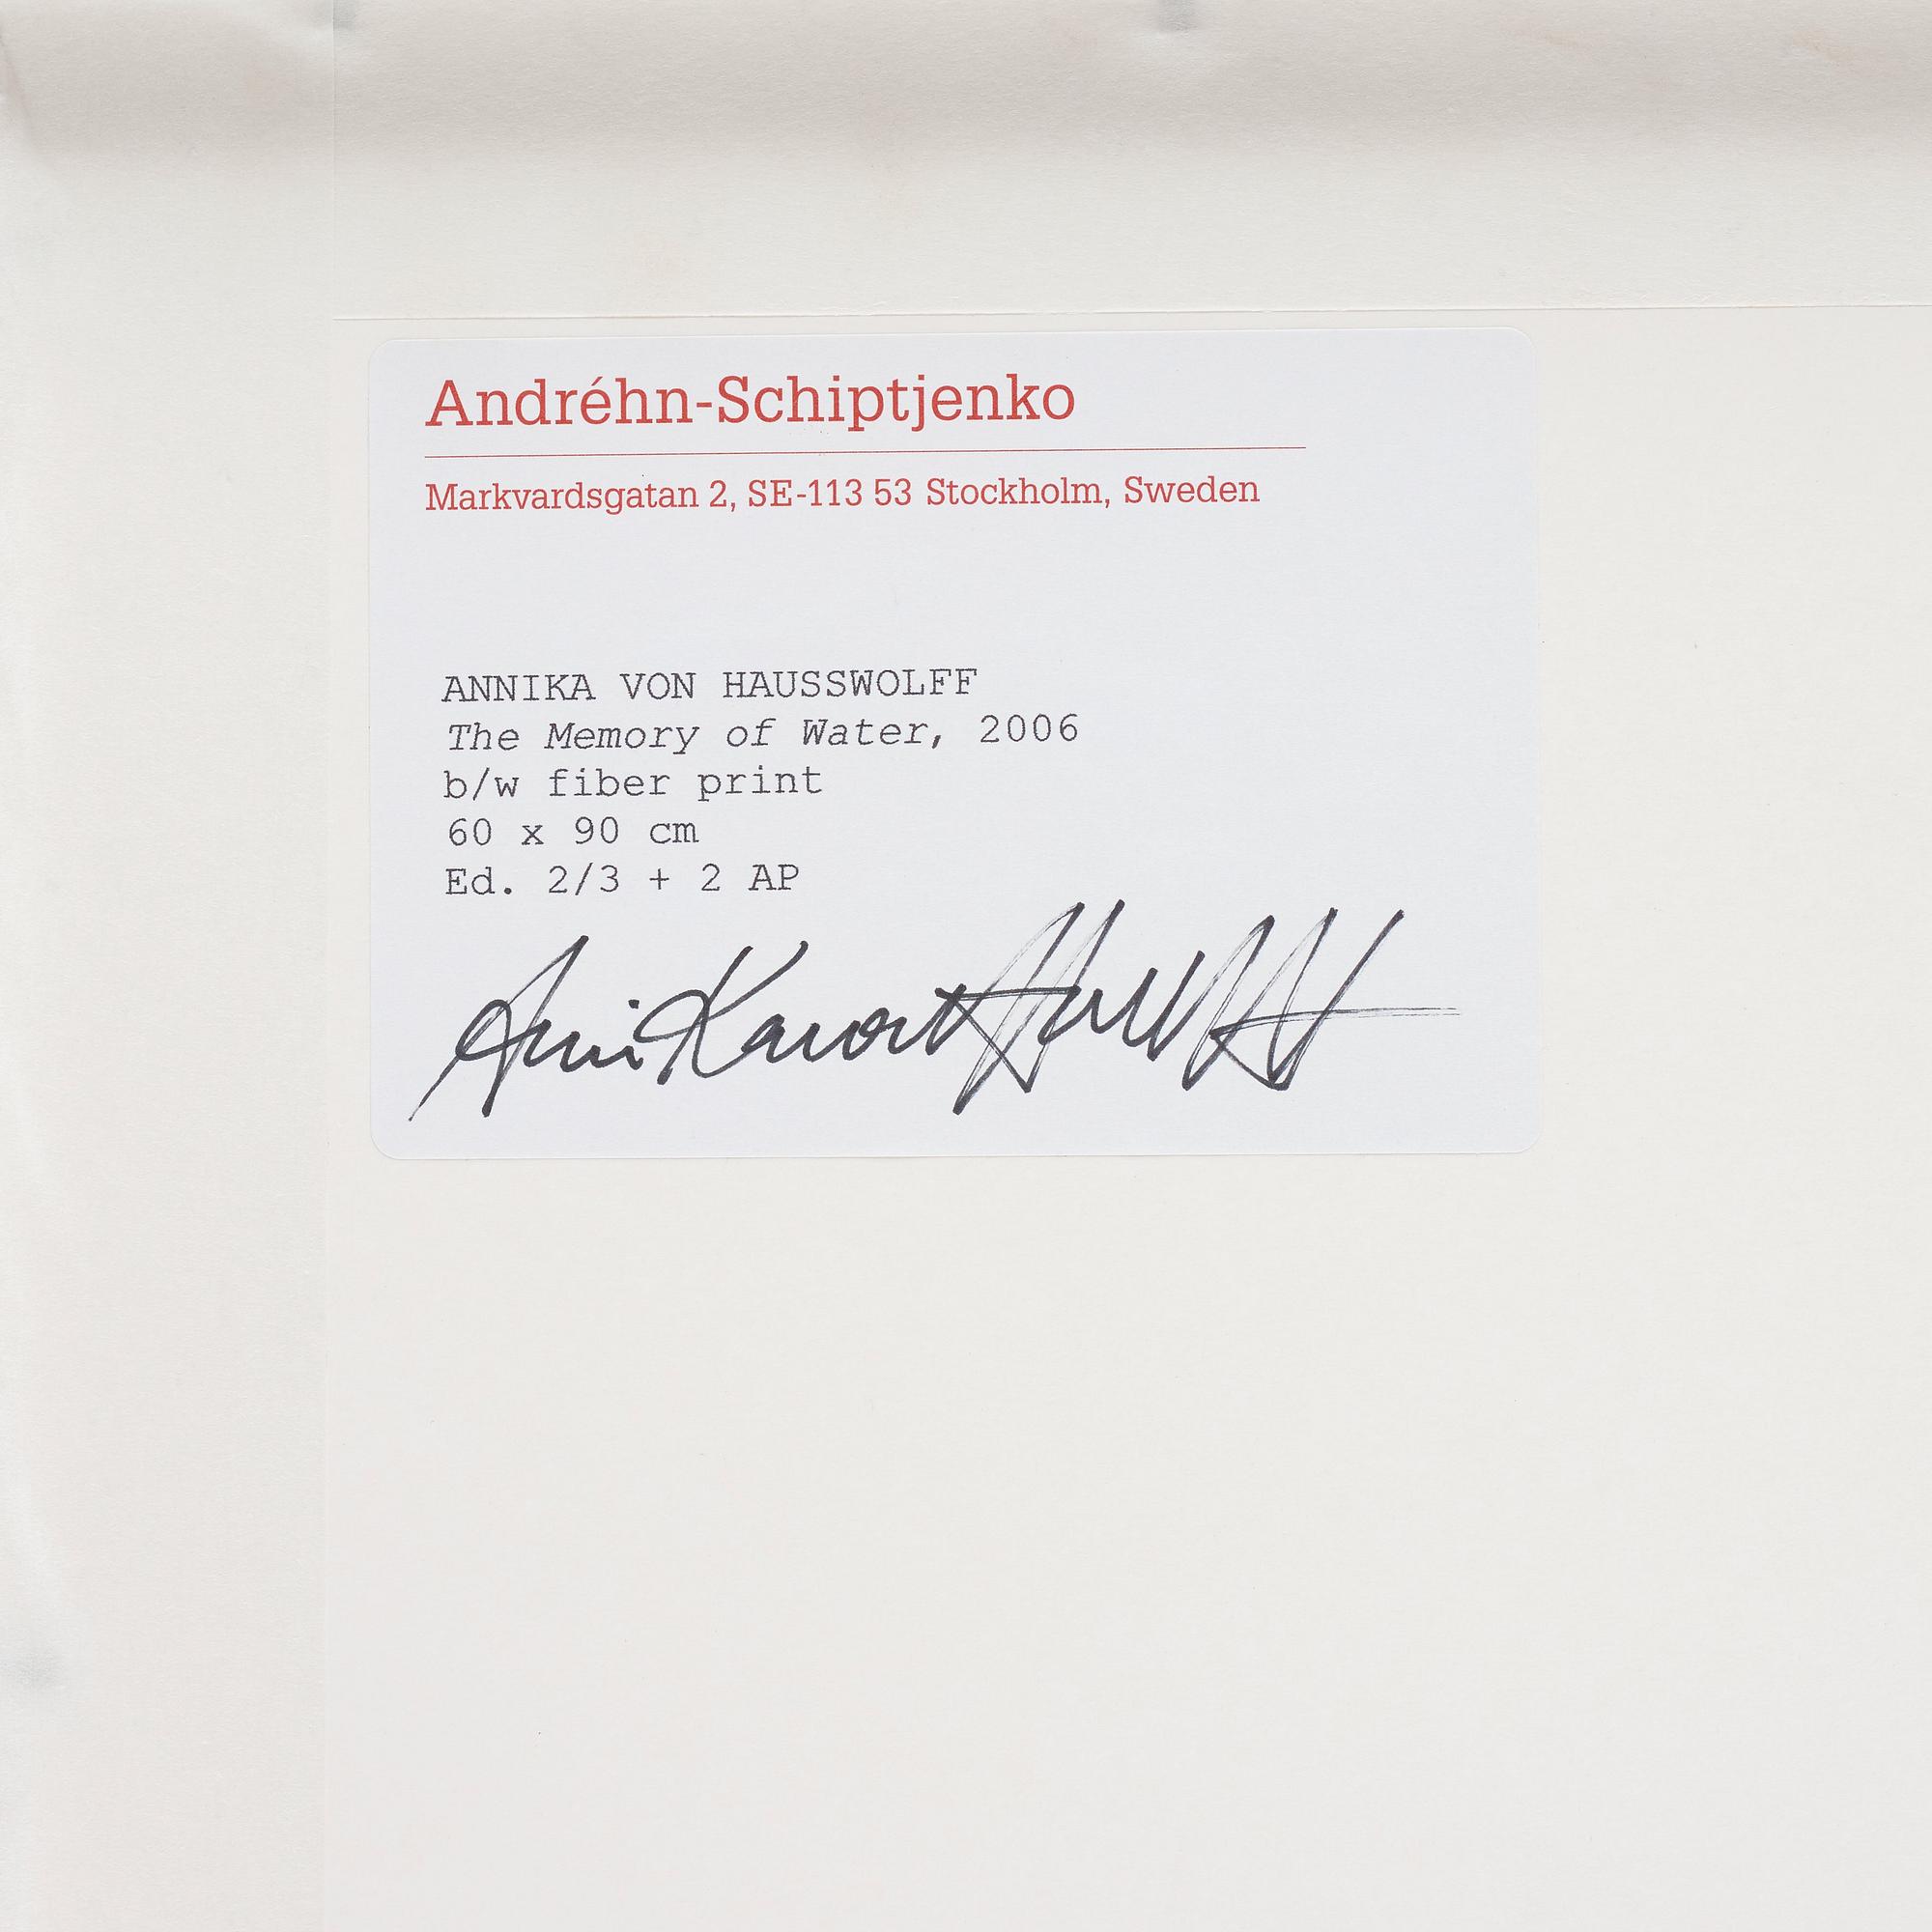 Andréhn-Schiptjenko
Markvardsgatan 2, SE-113 53 Stockholm, Sweden
ANNIKA VON HAUSSWOLFF
The Memory of Water, 2006
b/w fiber print
60 x 90 cm
Ed. 2/3 + 2 AP